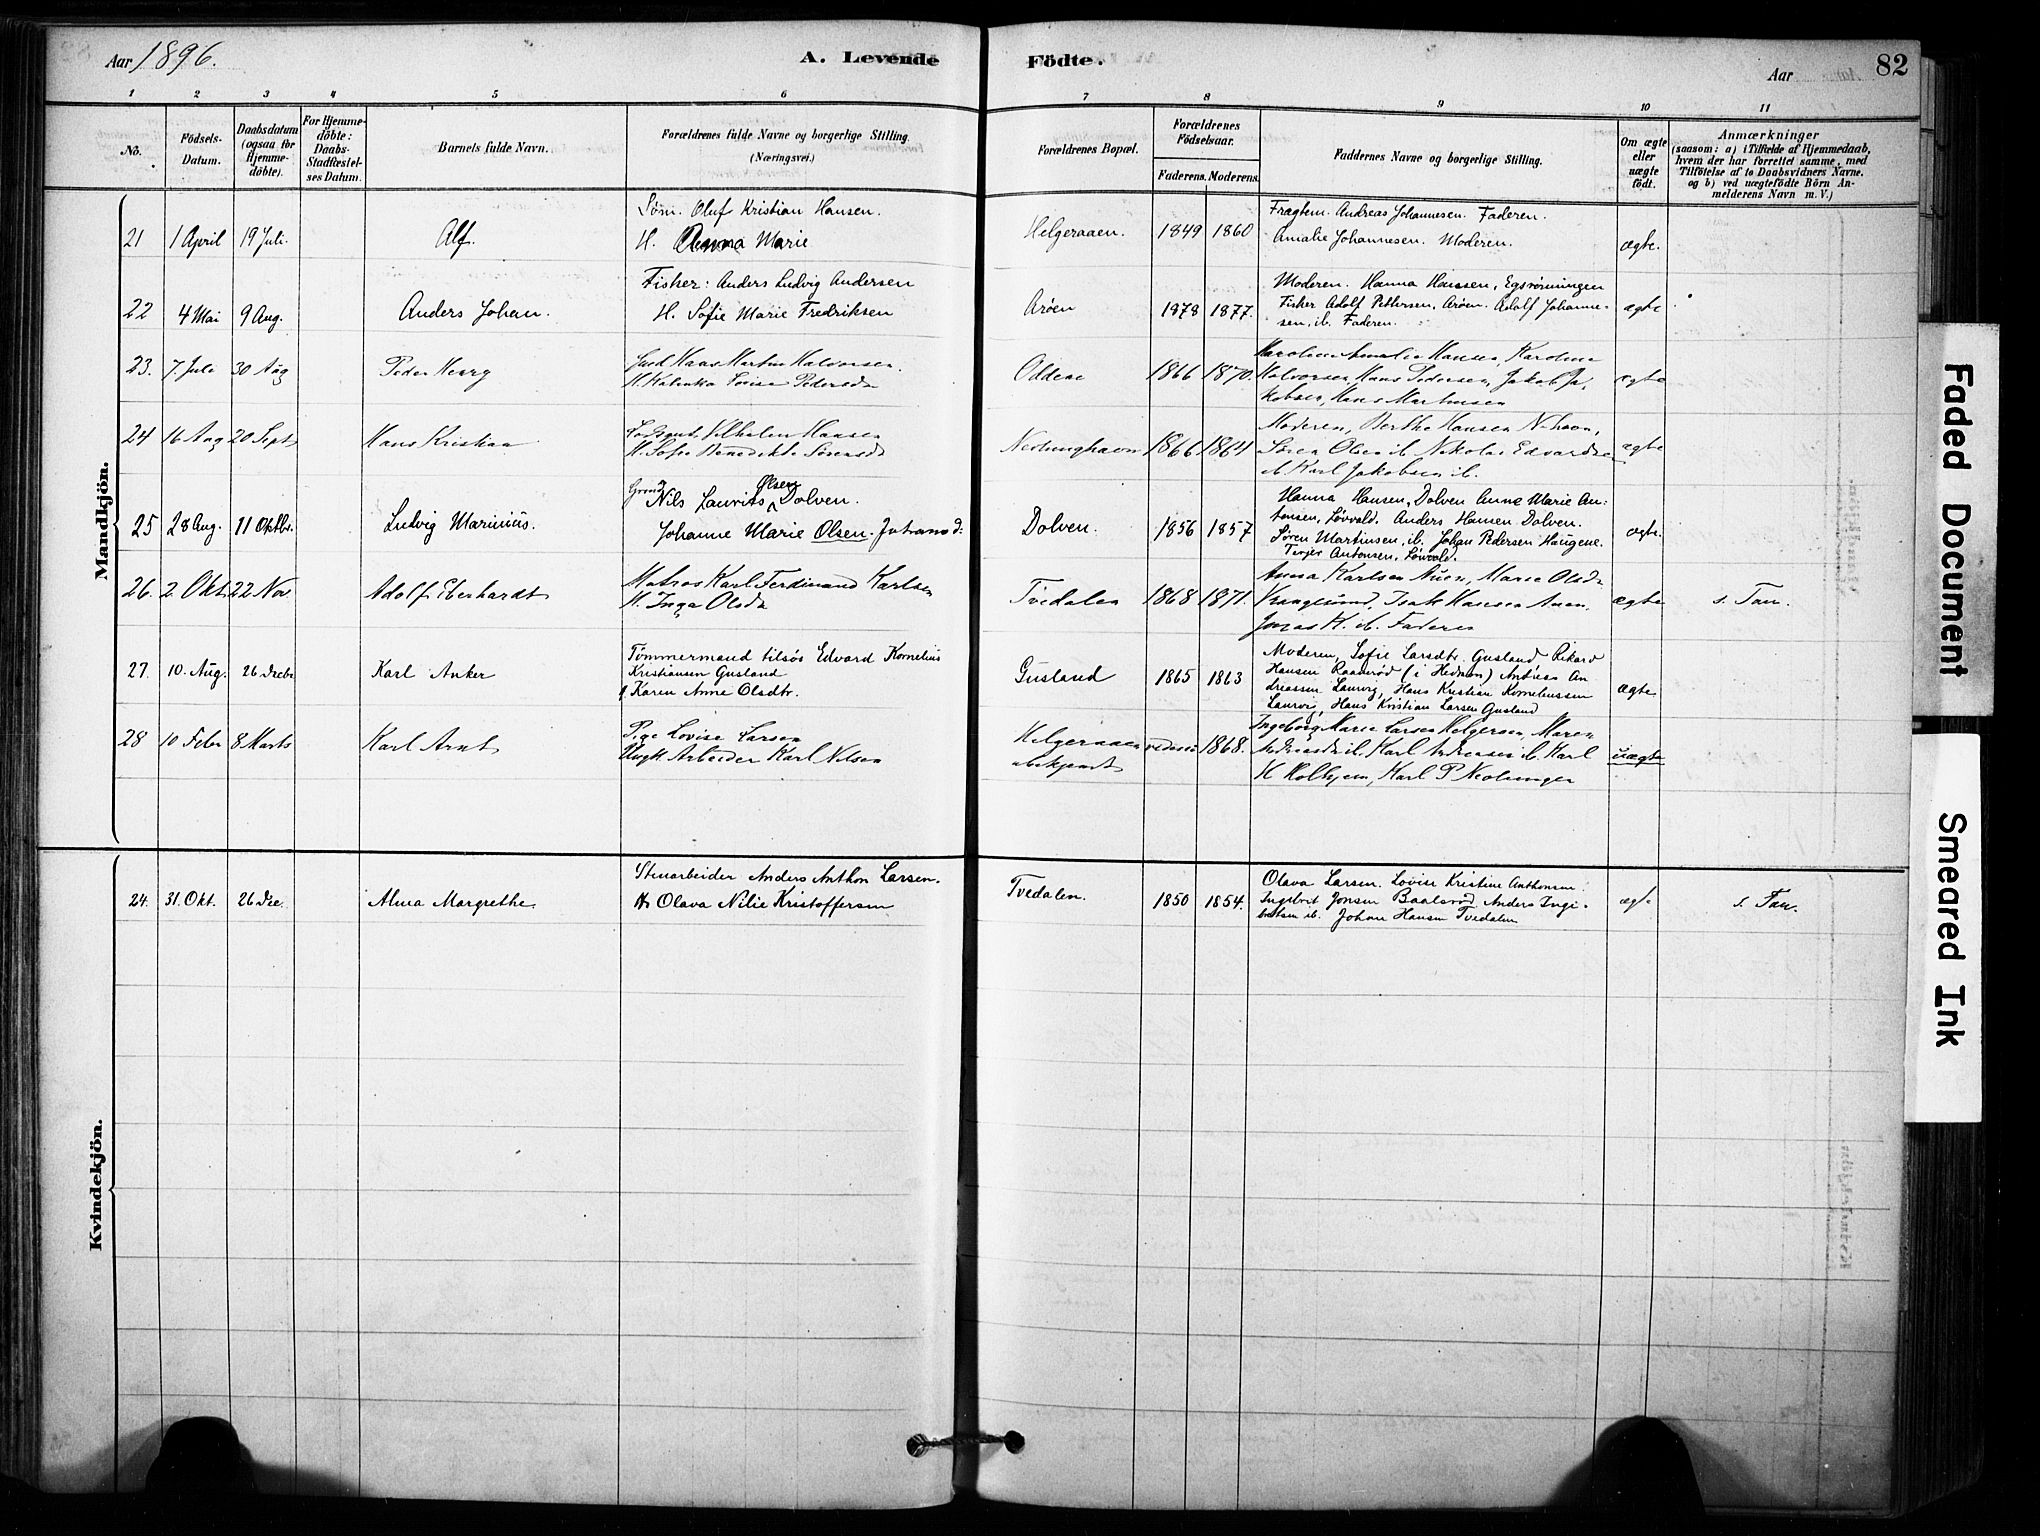 Aar 1896.
A. Levende
Födte.
Aar
82
1 2 3 4 5 6 7 8 9 10 11
No.
Födsels-Datum.
Daabsdatum (ogsaa for Hjemme-döbte).
For Hjemme-döbte: Daabs-Stadfæstel-ses Datum.
Barnets fulde Navn.
Forældrenes fulde Navne og borgerlige Stilling.
(Næringsvei.)
Forældrenes Bopæl.
Forældrenes Födselsaar.
Faderens. Moderens.
Faddernes Navne og borgerlige Stilling.
Om ægte eller uægte födt.
Anmærkninger
(saasom: a) i Tilfælde af Hjemmedaab,
hvem der har forrettet samme, med
Tilföielse af to Daabsvidners Navne.
og b) ved uægtefödte Börn An-
melderens Navn m. V.)
Mandkjön.
21 1 April 19 Juli. Alf.
Søm. Oluf Kristian Hansen.
H. Anna Marie
Helgeraaen. 1849 1860
Fragtem. Andreas Johannesen. Faderen.
Amalie Johannesen. Moderen.
ægte.
22 4 Mai 9 Aug. Anders Johan.
Fisker: Anders Ludvig Andersen
H. Sofie Marie Fredriksen
Arøen 1878 1877.
Moderen. Hanna Hansen,
Fisker Adolf Pettersen, Arøen. Adolf Johanne-
sen, ib. Faderen.
ægte
23. 7 Juli 30 Aug Peder Henry
Hans Martin Halvorsen.
H. Lovise Pedersdr
Oddene 1866 1870.
Amalie Hansen, Karoline
Halvorsen, Hans Pedersen, Jakob Ja-
kobsen, Hans Martinsen
ægte
24 16 Aug 20 Sept Hans Kristian
Vilhelm Hansen
H. Sofie Benedikte Sørensdr
Nevlunghavn 1866 1864
Moderen, Berthe Hansen N.havn,
Søren Olsen ib. Nikolai Edvardsen
ib. Karl Jakobsen ib.
ægte
25 28 Aug. 11 Oktbr. Ludvig Marinius.
Grmd Nils Laurits Olsen Dolven.
Johanne Marie Olsen. Johansd:
Dolven. 1856 1857
Hanna Hansen, Dolven Anne Marie An-
tonsen, Løvvald. Anders Hansen Dolven.
Søren Martinsen, ib. Johan Pedersen Haugene.
Terjer Antonsen, Løvvald.
ægte.
26. 2 Okt 22 Nov Adolf Eberhardt
Matros Karl Ferdinand Karlsen
H. Inga Olsdr
Tvedalen 1868 1871.
Anna Karlsen Auen, Marie Olsdr
Isak Hansen Auen,
Jonas K. ib. Faderen
ægte s. Tan.
27. 10. Aug. 26 Decbr Karl Anker
Tømmermand tilsøs Edvard Kornelius
Kristiansen Gusland
Karen Anne Olsdtr.
Gusland 1865 1863
Moderen, Sofie Larsdtr. Gusland Rikard
Hansen Raanerød (i Hedrum) Andreas An-
dreassen Laurvig, Hans Kristian Korneliussen
Laurvig, Hans Kristian Larsen Gusland
ægte
28 10 Febr 8 Marts Karl Arnt
Pige Lovise Larsen
Ungk. Arbeider Karl Nilsen
Helgeraaen
ubekjendt 1868.
Ingeborg Marie Larsen Helgeraaen, Maren
ib. Karl Andreasen ib. Karl
Karl P Nevlungen
uægte
Kvindekjön.
24. 31. Okt. 26 Dec. Alma Margrethe
Stenarbeider Anders Anthon Larsen.
H Olava Nilie Kristoffersen
Tvedalen. 1850 1854.
Olava Larsen. Lovise Kristine Anthonsen.
Ingebrit Jonsen Baalsrød Anders Ingi-
britsen ib. Johan Hansen Tvedalen
ægte s. Tan.
Faded Document
Smeared Ink